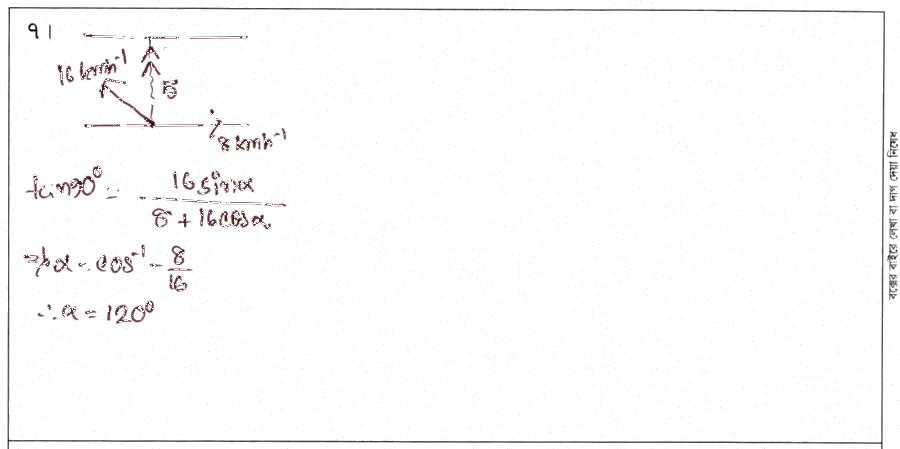 ৭।
16 kmh⁻¹
8 kmh⁻¹
tan90° = 16 sinα / 8 + 16 cosα
⇒ α = cos⁻¹ - 8/16
∴ α = 120°
বক্সের বাইরে লেখা বা দাগ দেয়া নিষেধ